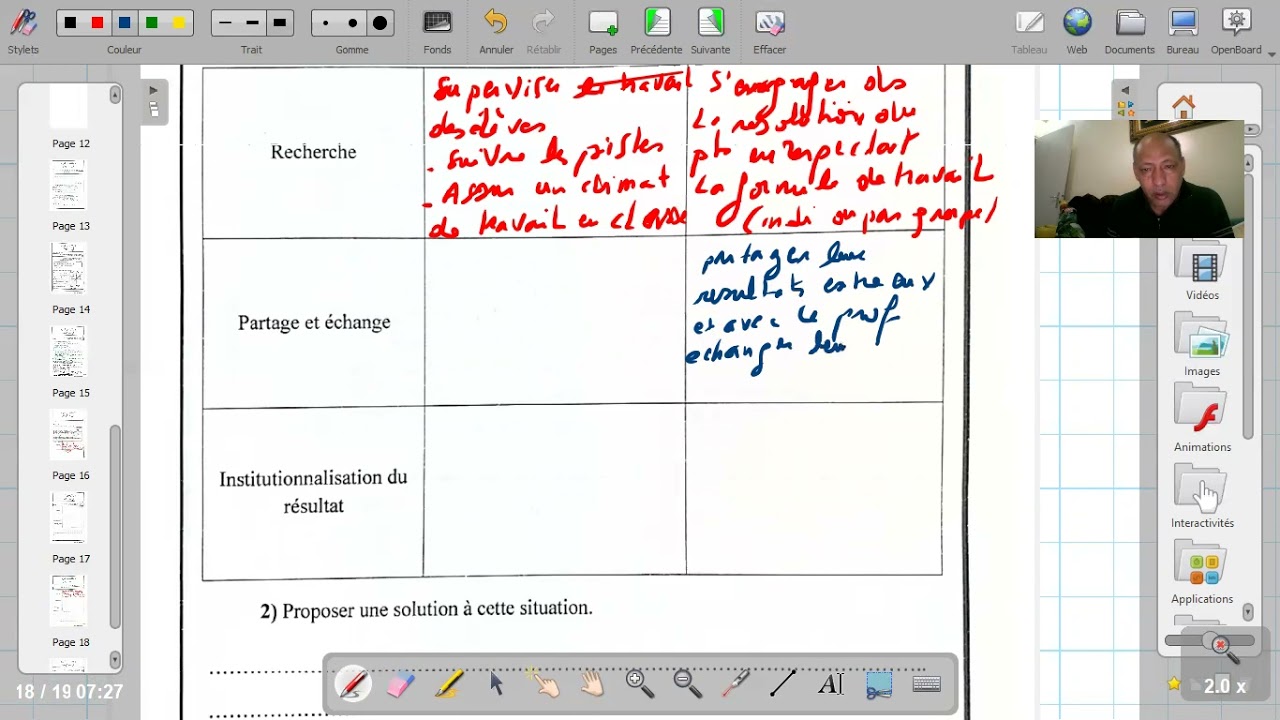 Stylets
Couleur
Trait
Gomme
Fonds
Annuler
Rétablir
Pages
Précédente
Suivante
Effacer
Tableau
Web
Documents
Bureau
OpenBoard
Page 12
Page 13
Page 14
Page 15
Page 16
Page 17
Page 18
18 / 19 07:27
Recherche
Superviser le travail
des élèves
- suivre les pistes
- Assurer un climat
de travail en classe
S'engager ds
la résolution du
pb en respectant
la formule de travail
(indi ou par groupe)
Partage et échange
partager leur
résultats entre eux
et avec le prof
echanger leu
Institutionnalisation du
résultat
2) Proposer une solution à cette situation.
Vidéos
Images
Animations
Interactivités
Applications
2.0 x